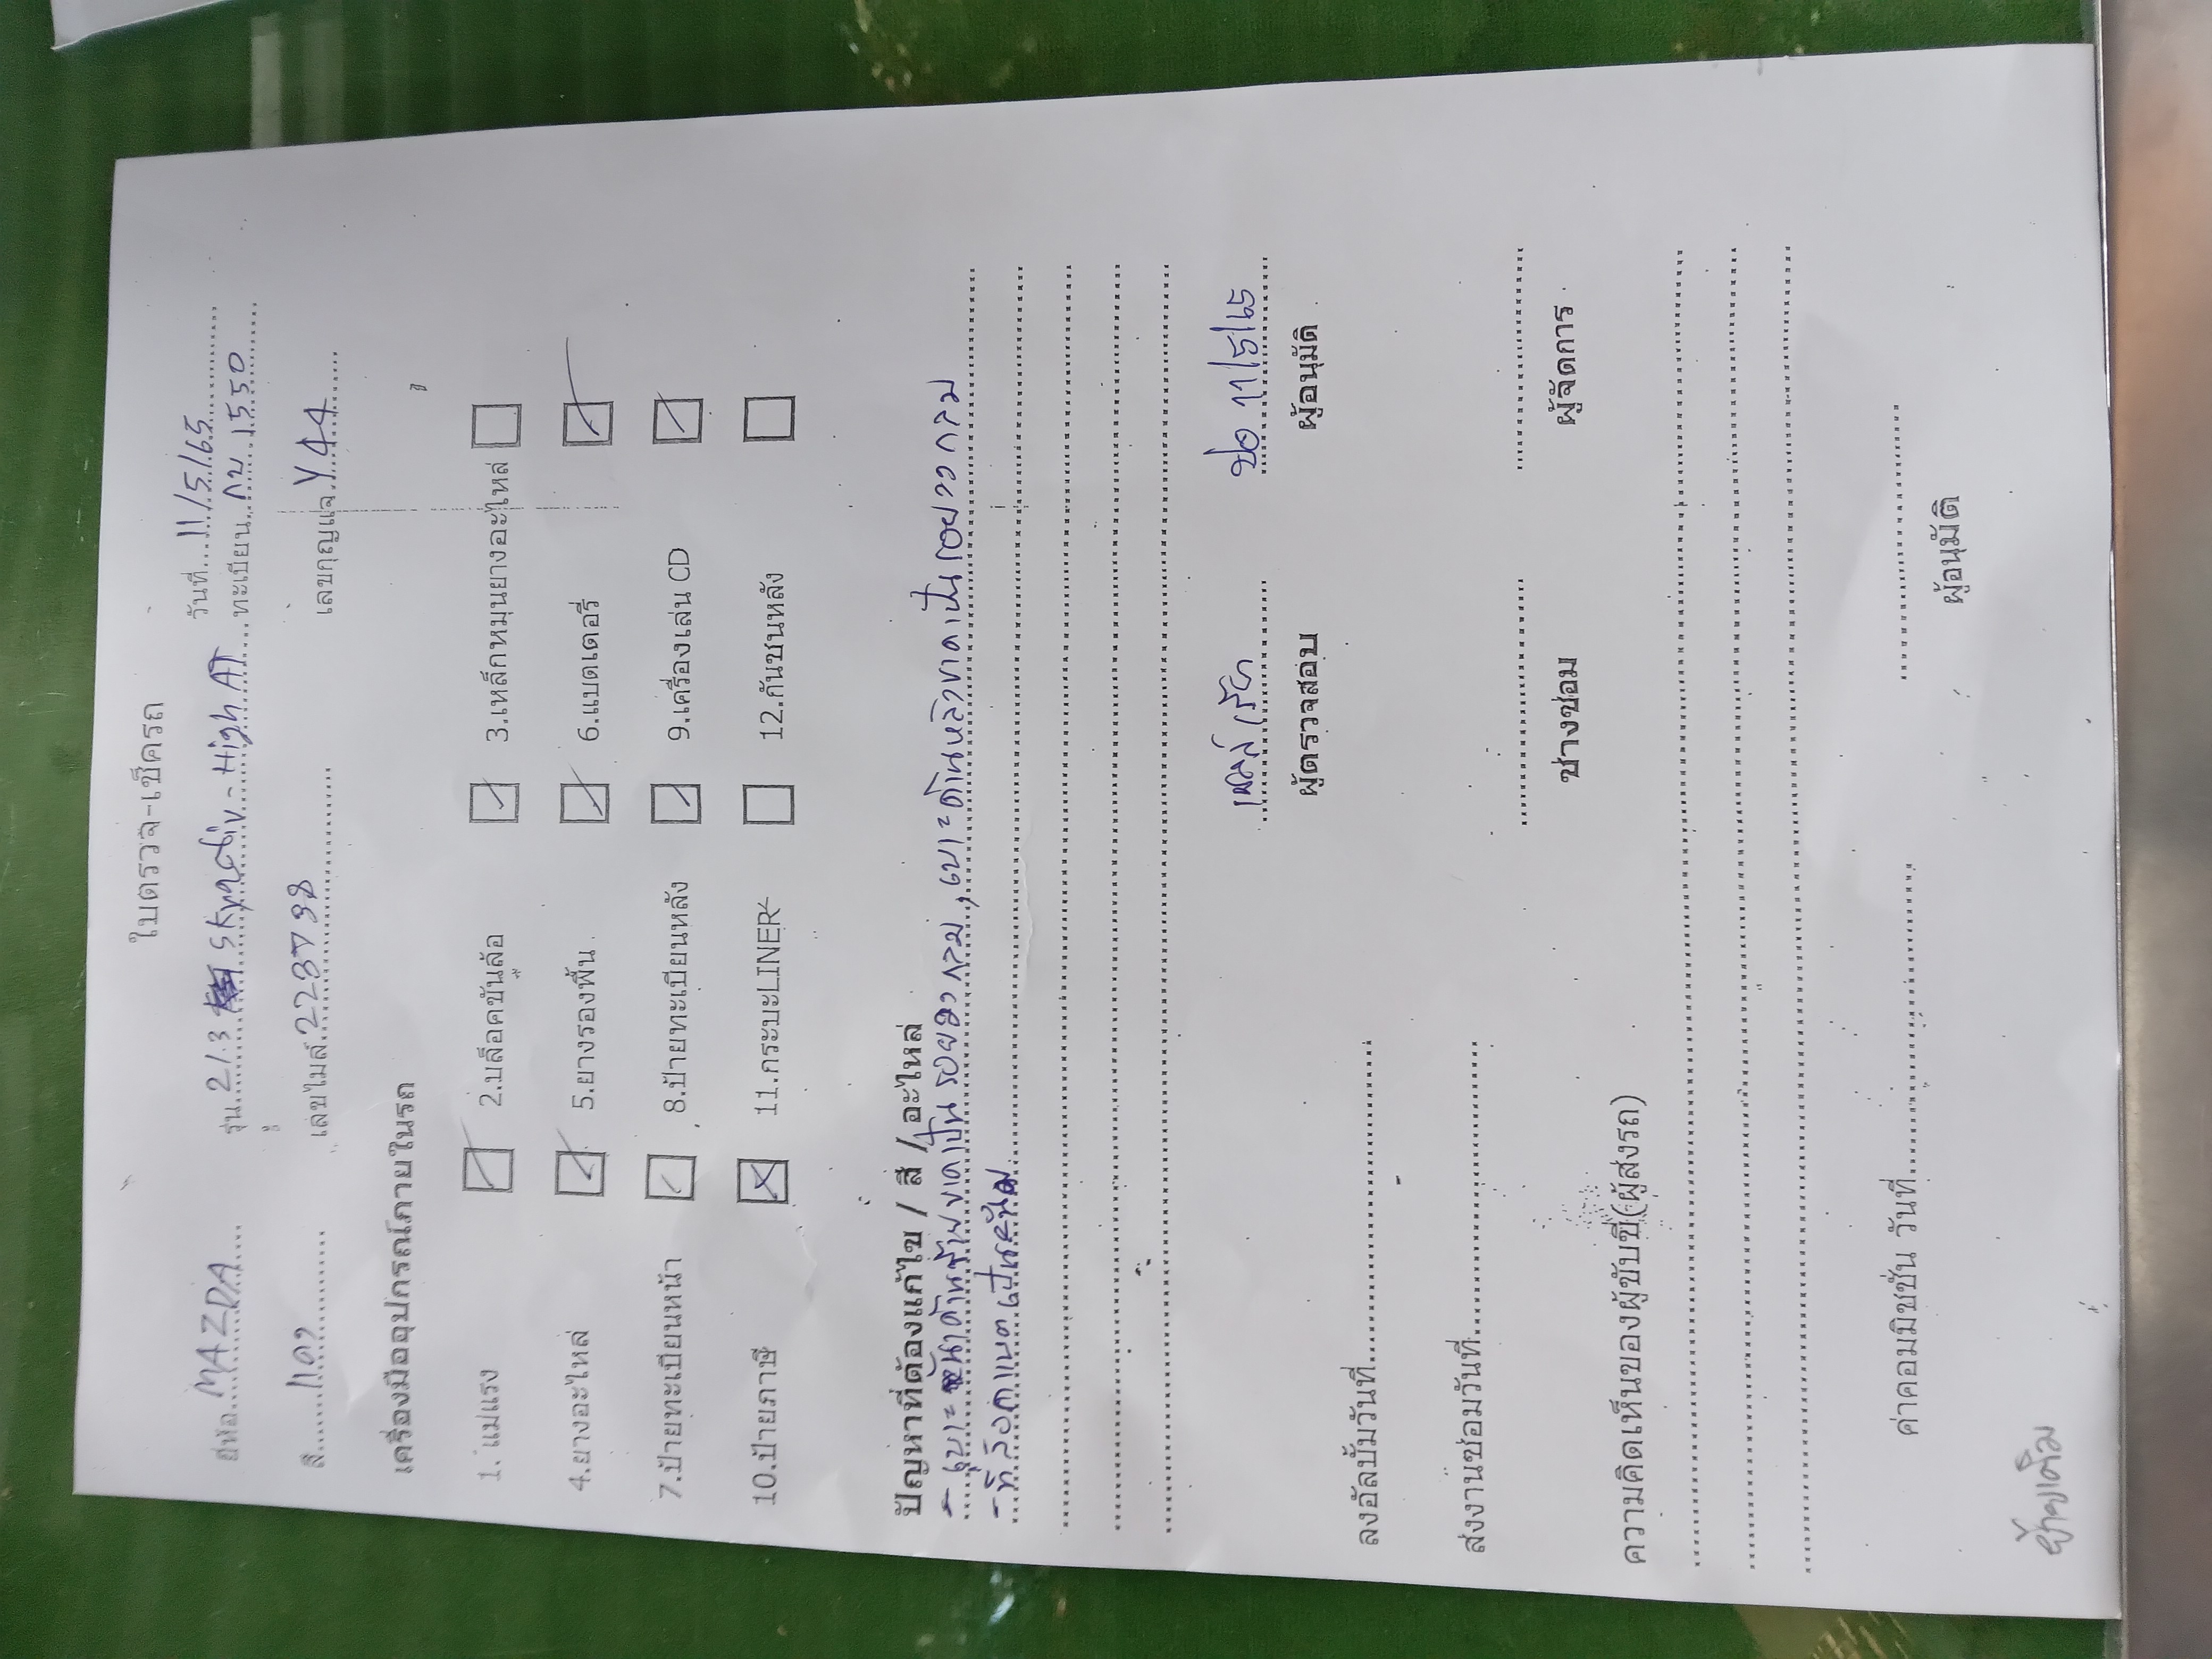 ใบตรวจ-เช็ครถ
วันที่ 11/5/65
ยี่ห้อ MAZDA รุ่น 2 1.3 Skyactiv - High AT ทะเบียน กบ 1550
สี แดง เลขไมล์ เลขกุญแจ Y44
เครื่องมืออุปกรณ์ภายในรถ
1. แม่แรง 2.บล็อคขันล้อ 3.เหล็กหมุนยางอะไหล่
4.ยางอะไหล่ 5.ยางรองพื้น 6.แบตเตอรี่
7.ป้ายทะเบียนหน้า 8.ป้ายทะเบียนหลัง 9.เครื่องเล่น CD
10.ป้ายภาษี 11.กระบะLINER 12.กันชนหลัง
ปัญหาที่ต้องแก้ไข / สี / อะไหล่
- เบาะ ด้านซ้ายขาดเป็นรอยวงกลม , เบาะด้านหลังขาดเป็นรอยวงกลม
- ที่ล็อกแบตเป็นสนิม
11/5/65
ผู้ตรวจสอบ ผู้อนุมัติ
ลงอัลบั้มวันที่
ส่งงานซ่อมวันที่
ช่างซ่อม ผู้จัดการ
ความคิดเห็นของผู้ขับขี่(ผู้ส่งรถ)
ค่าคอมมิชชั่น วันที่
ผู้อนุมัติ